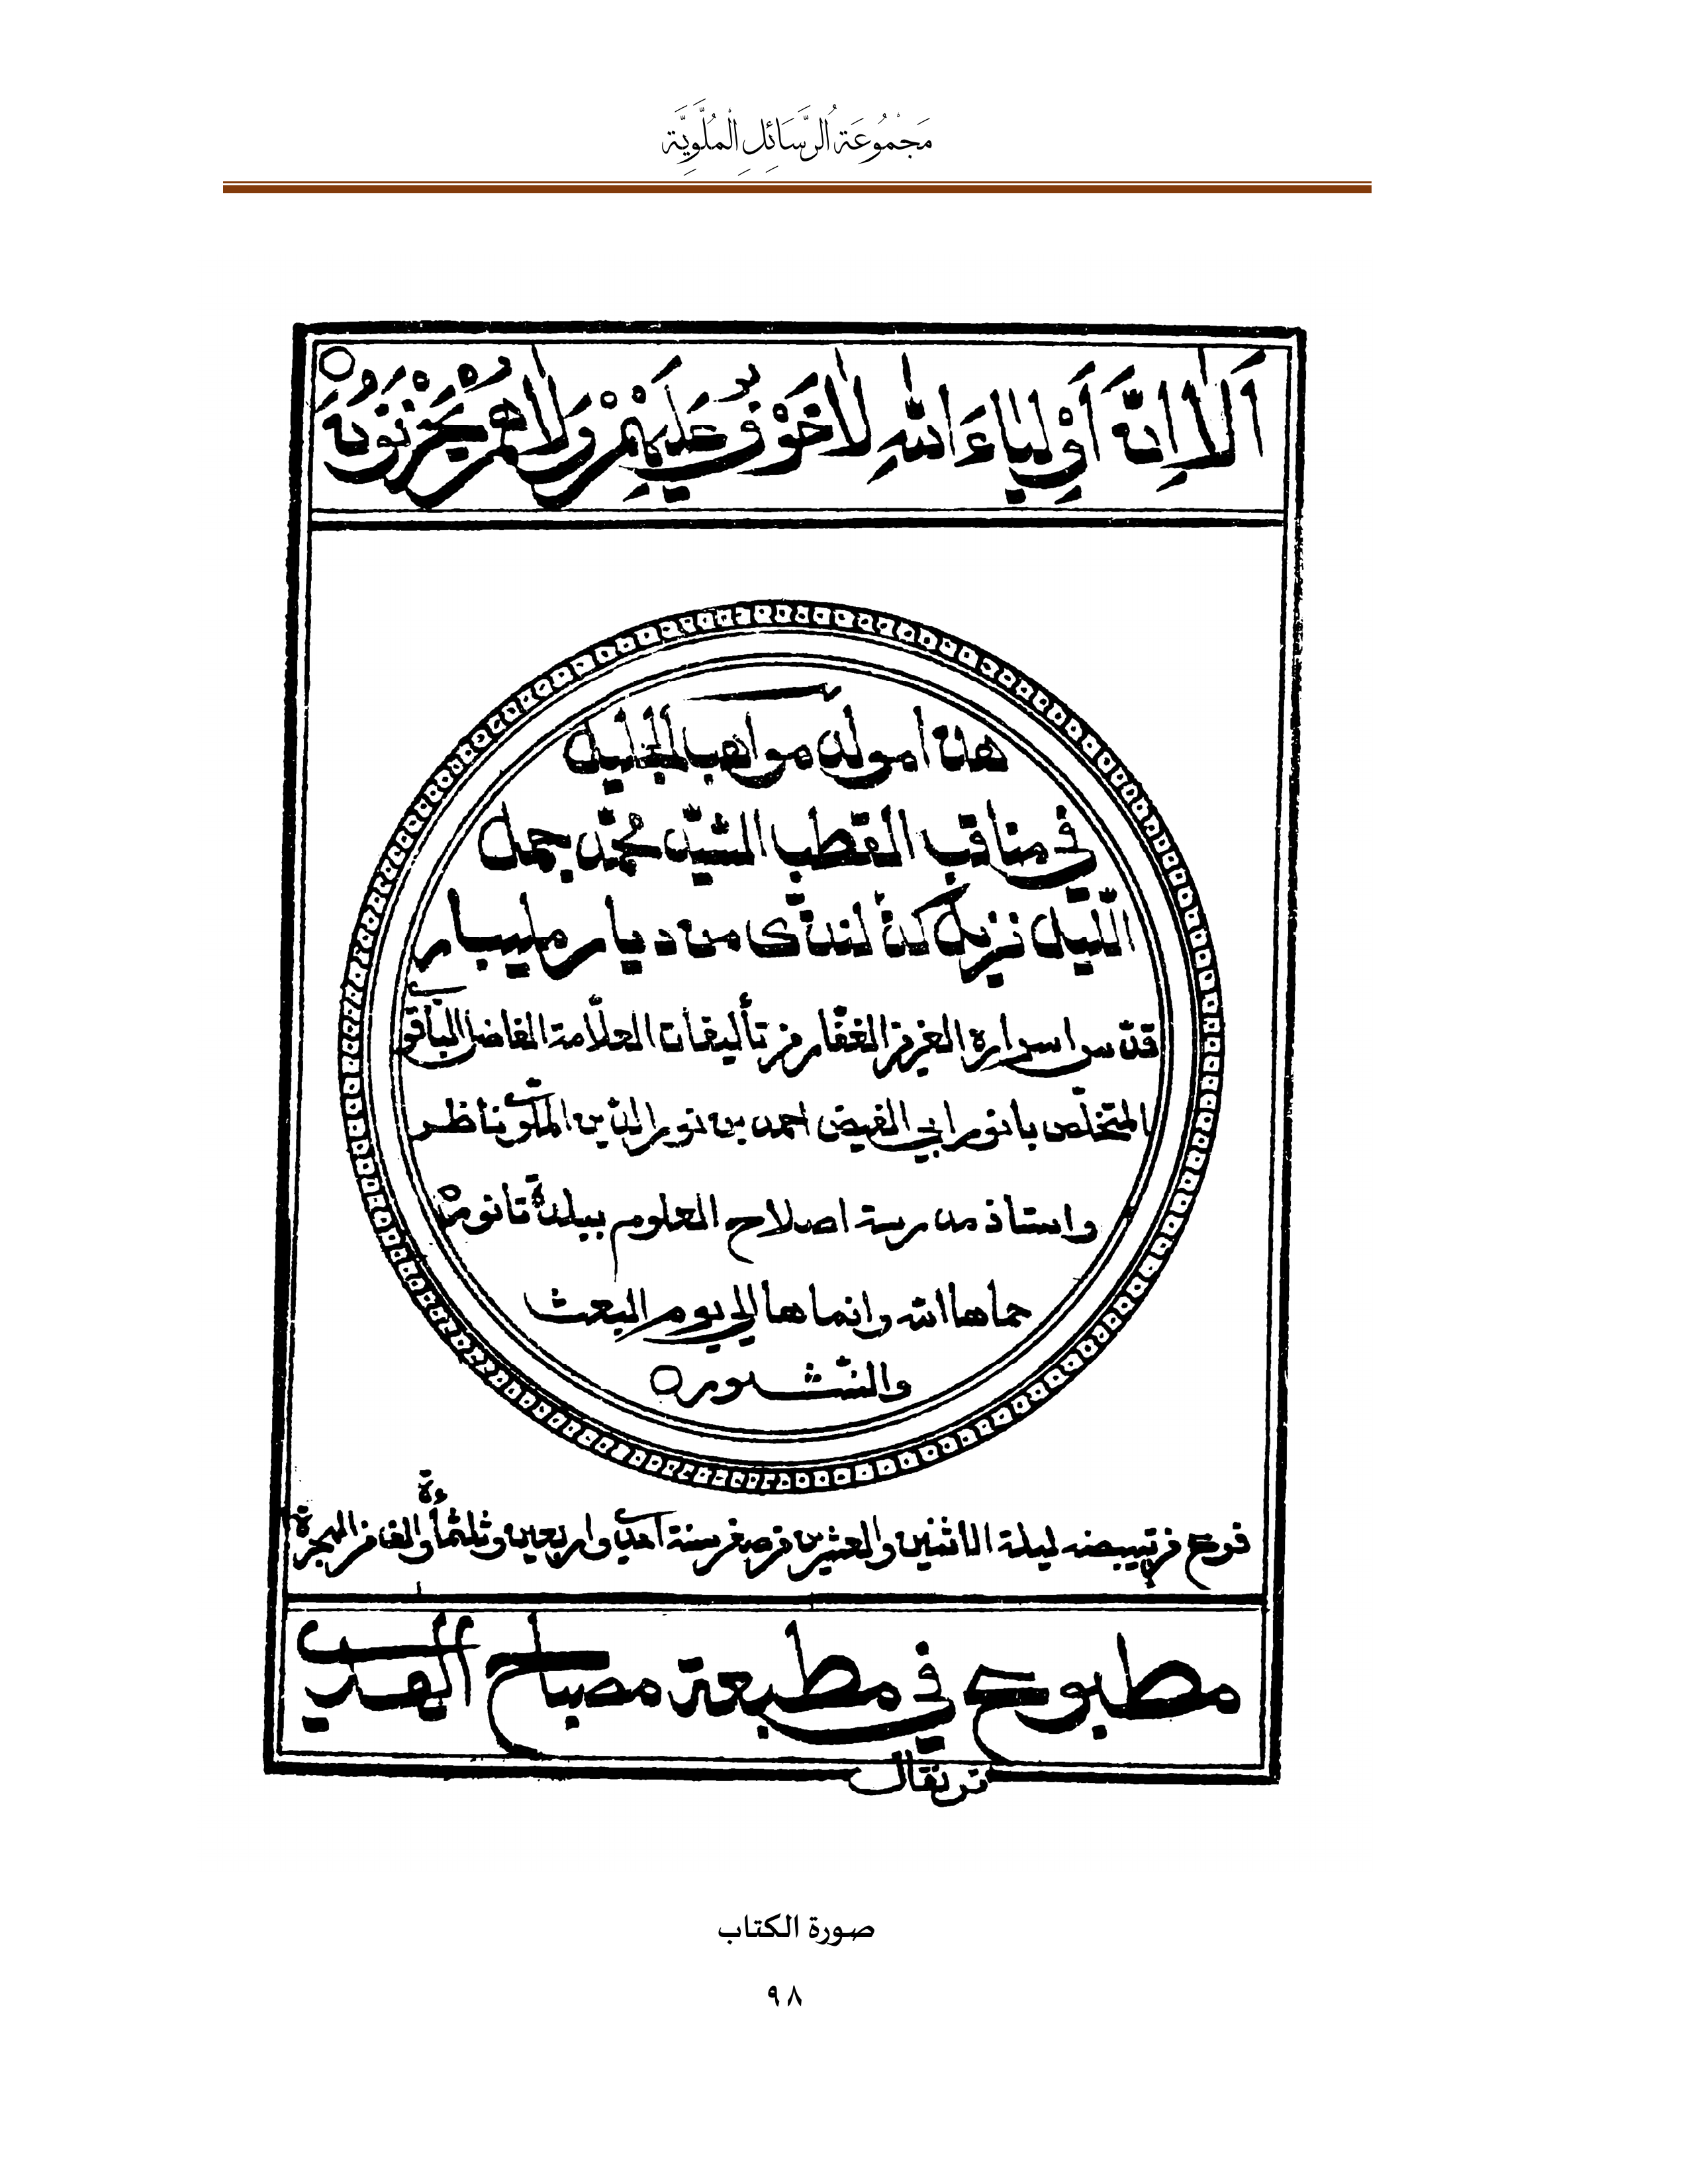 مَجْمُوعَةُ الرَّسَائِلِ الْمُلَّوِيَّةِ
اَلَا اِنَّ اَوْلِيَاءَ اللّٰهِ لَا خَوْفٌ عَلَيْهِمْ وَلَا هُمْ يَحْزَنُوْنَ
هذا مولد مواهب الجليل
فى مناقب القطب السّيّد محمّد جمل
اللّيل نزيل من ديار مليبار
قدّس اسراره العزيز الغفّار من تأليفات العلّامة الفاضل
المتخلّص بانور ابي الفيض احمد بن نور الدّين الملّوي ناظر
واستاذ مدرسة اصلاح العلوم ببلدة تانور
حماها الله وانماها الى يوم البعث
والنّشور
فرغ من تبييضه ليلة الاثنين والعشرين من صفر سنة احدى واربعين وثلثمأة والف من الهجرة
مطبوع في مطبعة مصباح الهدى
صورة الكتاب
٩٨